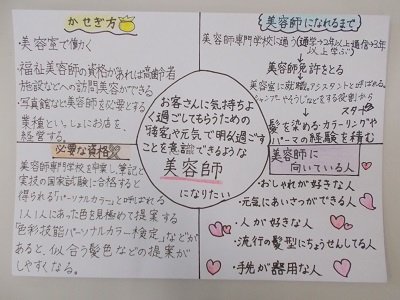 かせぎ方
・美容室で働く
・福祉美容師の資格があれば高齢者
施設などへの訪問美容ができる
・写真館など美容師を必要とする
業種といっしょにお店を
経営する。
美容師になれるまで
美容師専門学校に通う(通学→2年以上通信→3年
以上学ぶ)
美容師免許をとる
美容室に就職。アシスタントとよばれる。
シャンプーやそうじなどをする役割から
スタート
髪を染めるカラーリングや
パーマの経験を積む
お客さんに気持ちよ
く過ごしてもらうための
接客や元気で明るく過ごす
ことを意識できるような
美容師
になりたい
必要な資格
美容師専門学校を卒業し、筆記と
実技の国家試験に合格すると
得られる「パーソナルカラー」と呼ばれる
1人1人にあった色を見極めて提案する
「色彩技能パーソナルカラー検定」などが
あると、似合う髪色などの提案が
しやすくなる。
美容師に
向いている人
・おしゃれが好きな人
・元気にあいさつができる人
・人が好きな人
・流行の髪型にちょうせんしてる人
・手先が器用な人